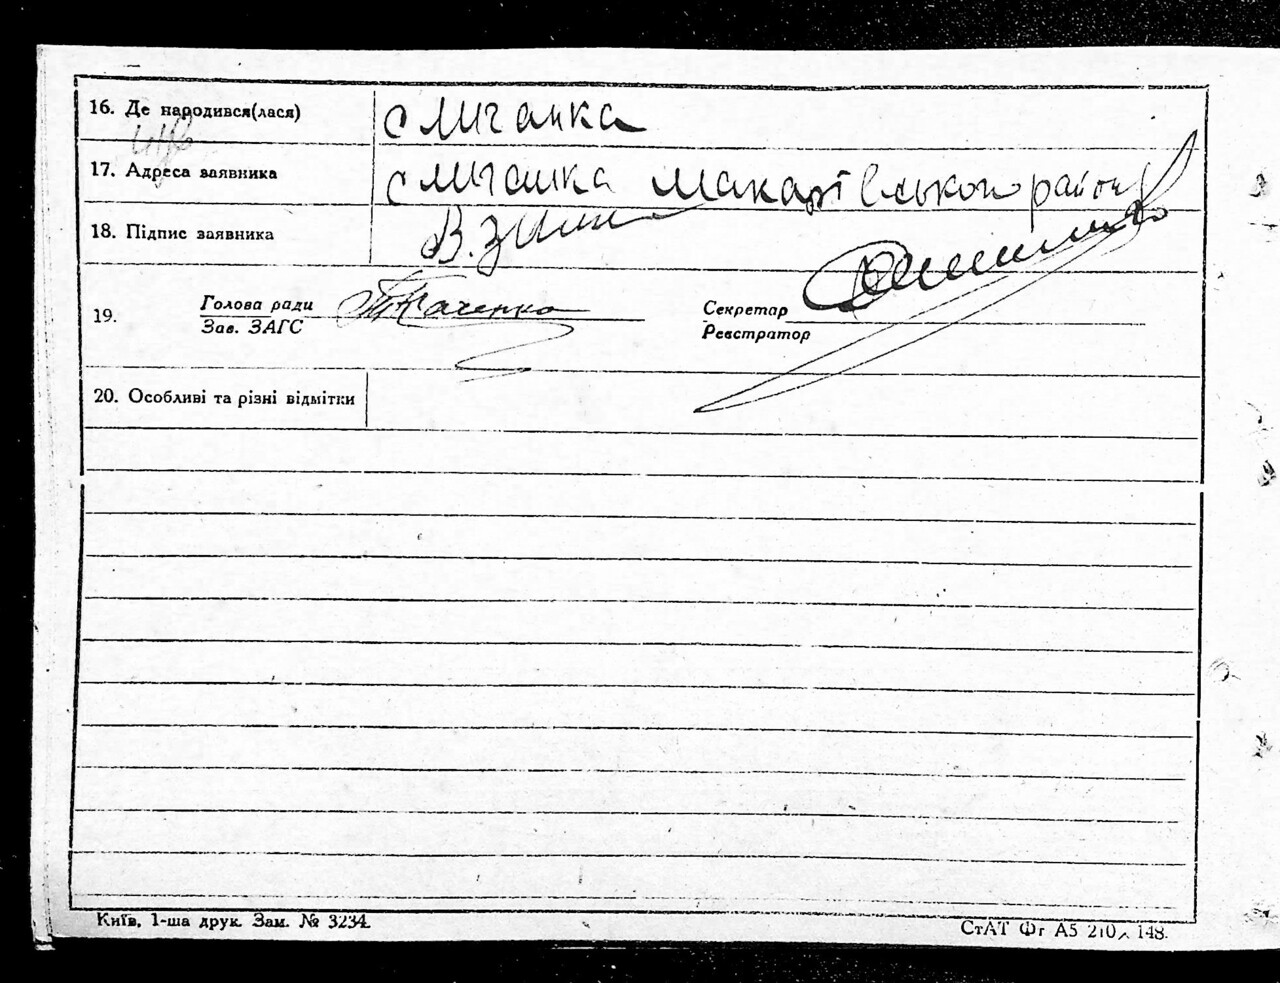 16. Де народився(лася) с Мигалка
17. Адреса заявника с Мигалка Макарівського району
18. Підпис заявника В.
19. Голова ради Ткаченко Секретар
Зав. ЗАГС Реєстратор
20. Особливі та різні відмітки
Київ, 1-ша друк. Зам. № 3234 СтАТ Фг А5 210 148.